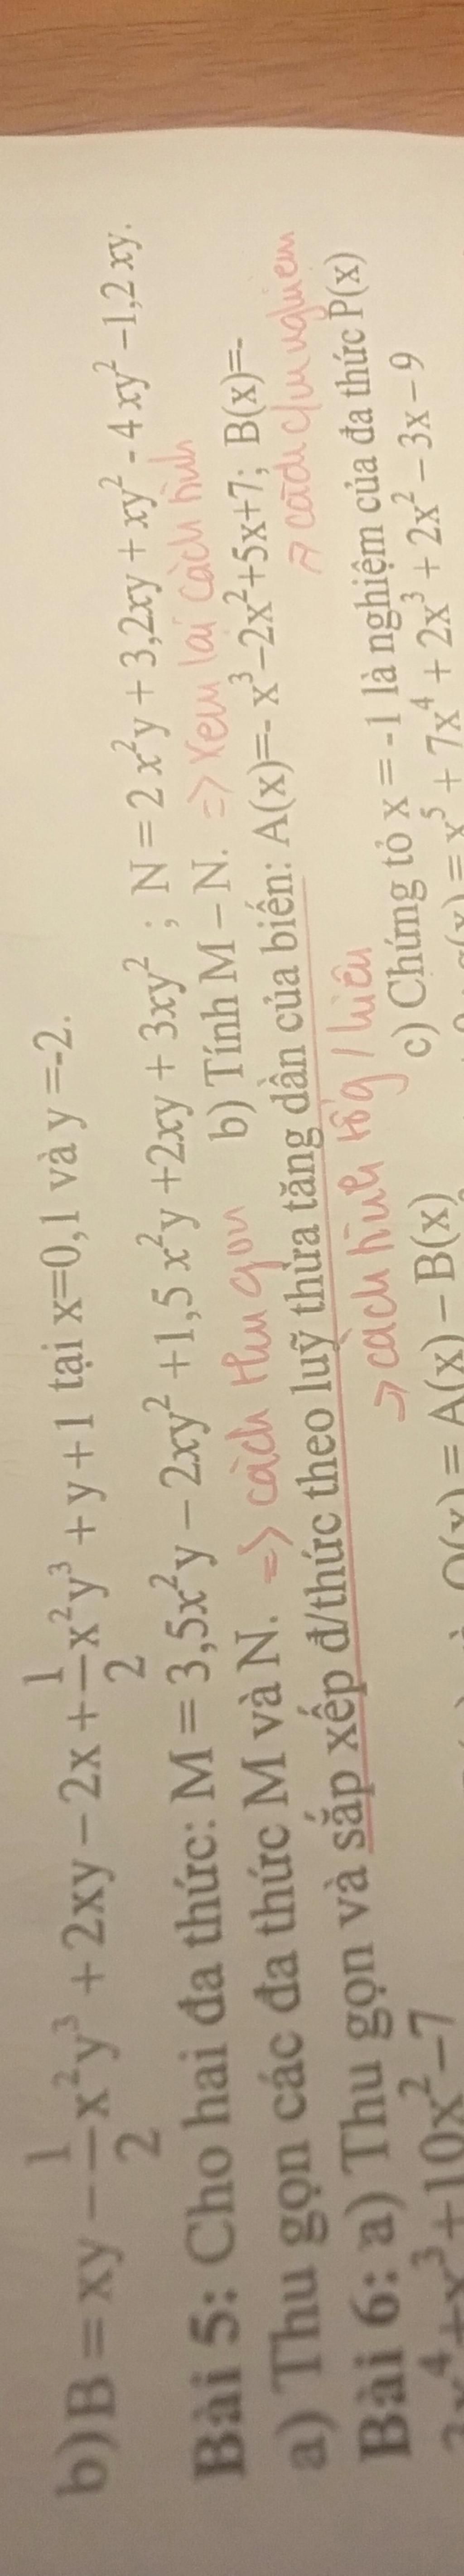 b) B = xy - 1/2 x²y³ + 2xy - 2x + 1/2 x²y³ + y + 1 tại x=0,1 và y =-2.
Bài 5: Cho hai đa thức: M = 3,5x²y - 2xy² +1,5 x²y +2xy + 3xy² ; N = 2 x²y + 3,2xy + xy² - 4 xy² -1,2 xy.
a) Thu gọn các đa thức M và N. => cách thu gọn b) Tính M - N. => xem lại cách tính
Bài 6: a) Thu gọn và sắp xếp đ/thức theo luỹ thừa tăng dần của biến: A(x)=- x³-2x²+5x+7; B(x)=-
x³+10x²-7 => cách tính tổg / hiệu => cách c/m nghiệm
= A(x) - B(x) c) Chứng tỏ x = -1 là nghiệm của đa thức P(x)
= x⁵ + 7x⁴ + 2x³ + 2x² - 3x - 9